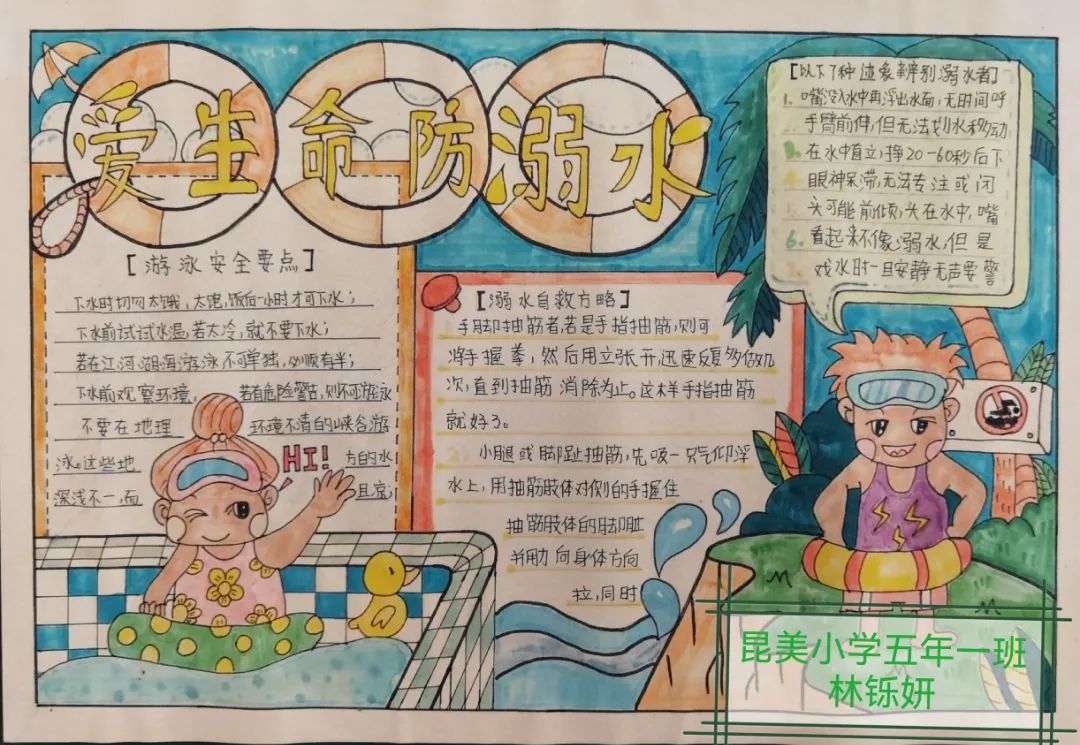 爱生命防溺水
[游泳安全要点]
下水时切勿太饿,太饱,饭后一小时才可下水;
下水前试试水温,若太冷,就不要下水;
若在江河湖海游泳,不可单独,必顺有半;
下水前观察环境,若有危险警告,则不可游泳
不要在地理 环境不清的峡谷游
泳。这些地 方的水
深浅不一,而 且凉;
HI!
[溺水自救方略]
手脚抽筋者,若是手指抽筋,则可
将手握拳,然后用立张开,迅速反复多做几
次,直到抽筋消除为止。这样手指抽筋
就好了。
小腿或脚趾抽筋,先吸一口气仰浮
水上,用抽筋肢体对侧的手握住
抽筋肢体的脚趾
并用力向身体方向
拉,同时
[以下7种迹象辨别溺水者]
1. 嘴没入水中再浮出水面,无时间呼
手臂前伸,但无法划水移动
在水中直立,挣20-60秒后下
眼神呆滞,无法专注或闭
头可能前倾,头在水中,嘴
6. 看起来不像溺水,但是
戏水时一旦安静无声要警
昆美小学五年一班
林铄妍